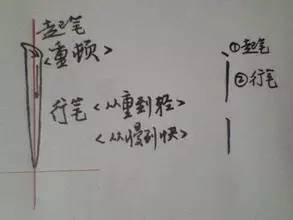 起笔
<重顿>
行笔<从重到轻>
<从慢到快>
①起笔
②行笔